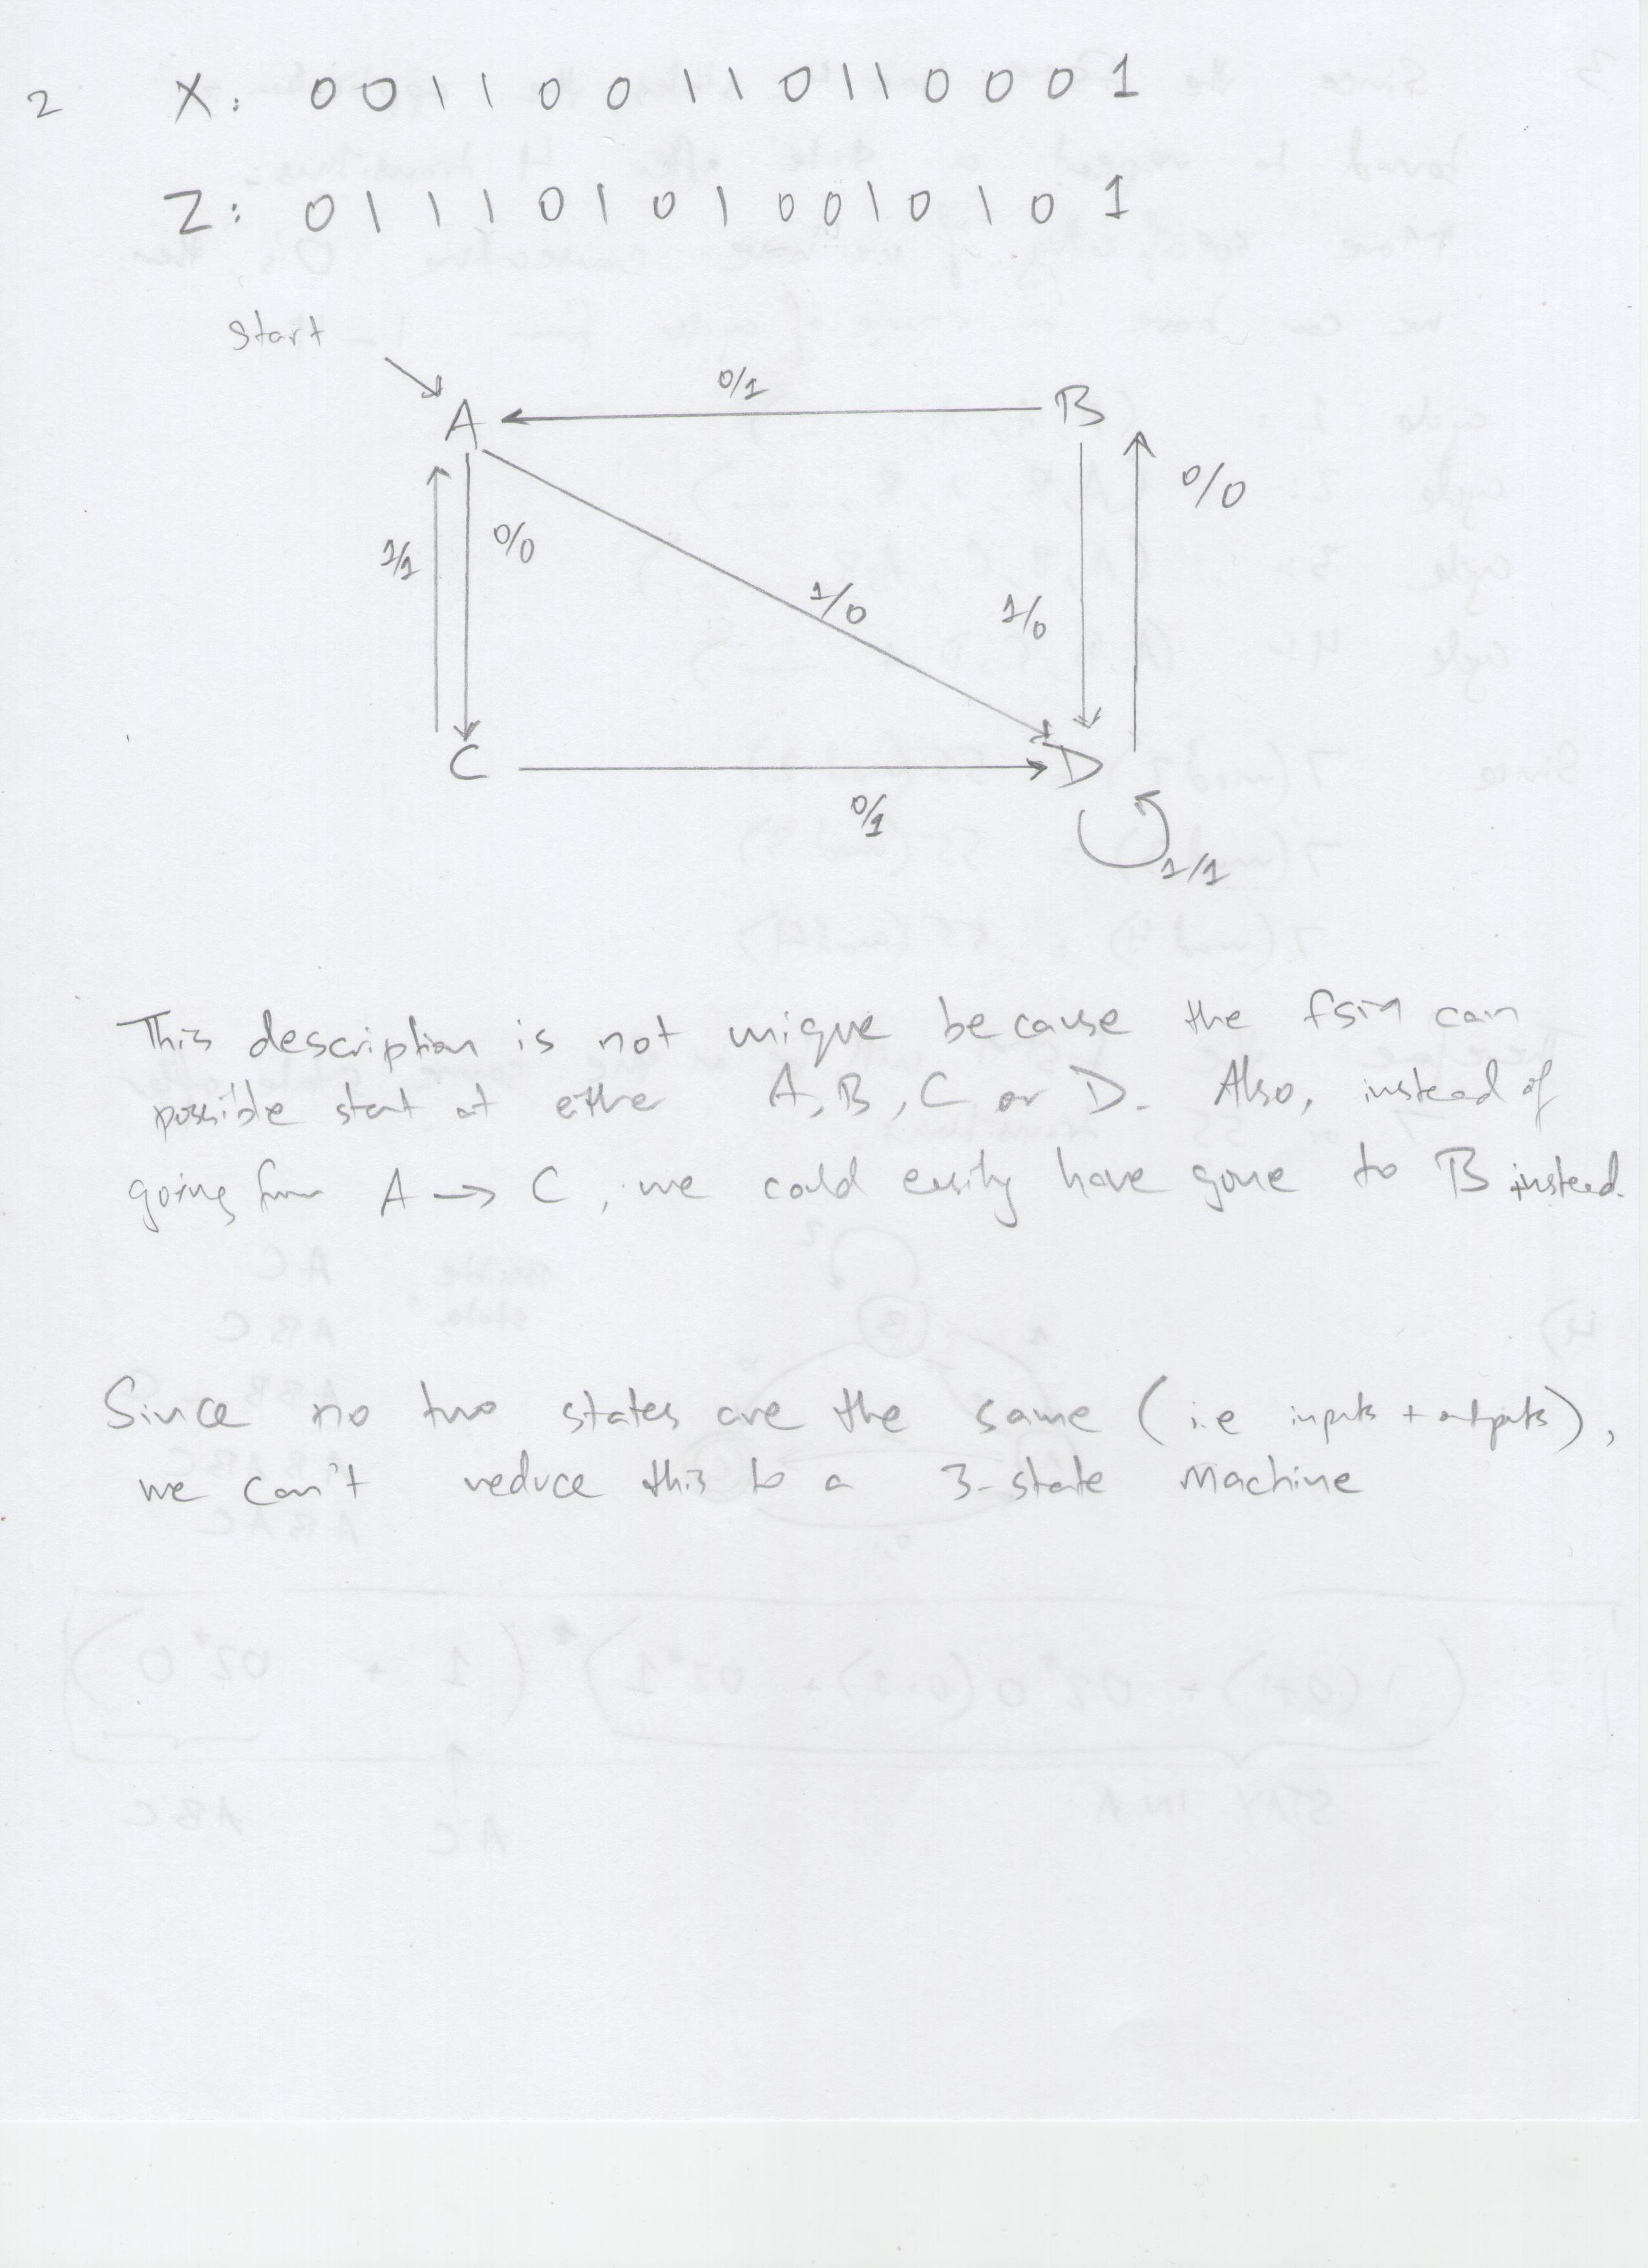 2 X: 0 0 1 1 0 0 1 1 0 1 1 0 0 0 1
Z: 0 1 1 1 0 1 0 1 0 0 1 0 1 0 1
Start
0/1
A B
0/0
1/1 0/0
1/0 1/0
C D
0/1
1/1
This description is not unique because the fsm can
possible start at either A, B, C or D. Also, instead of
going from A → C, we could easily have gone to B instead.
Since no two states are the same (i.e inputs + outputs),
we can't reduce this to a 3-state machine